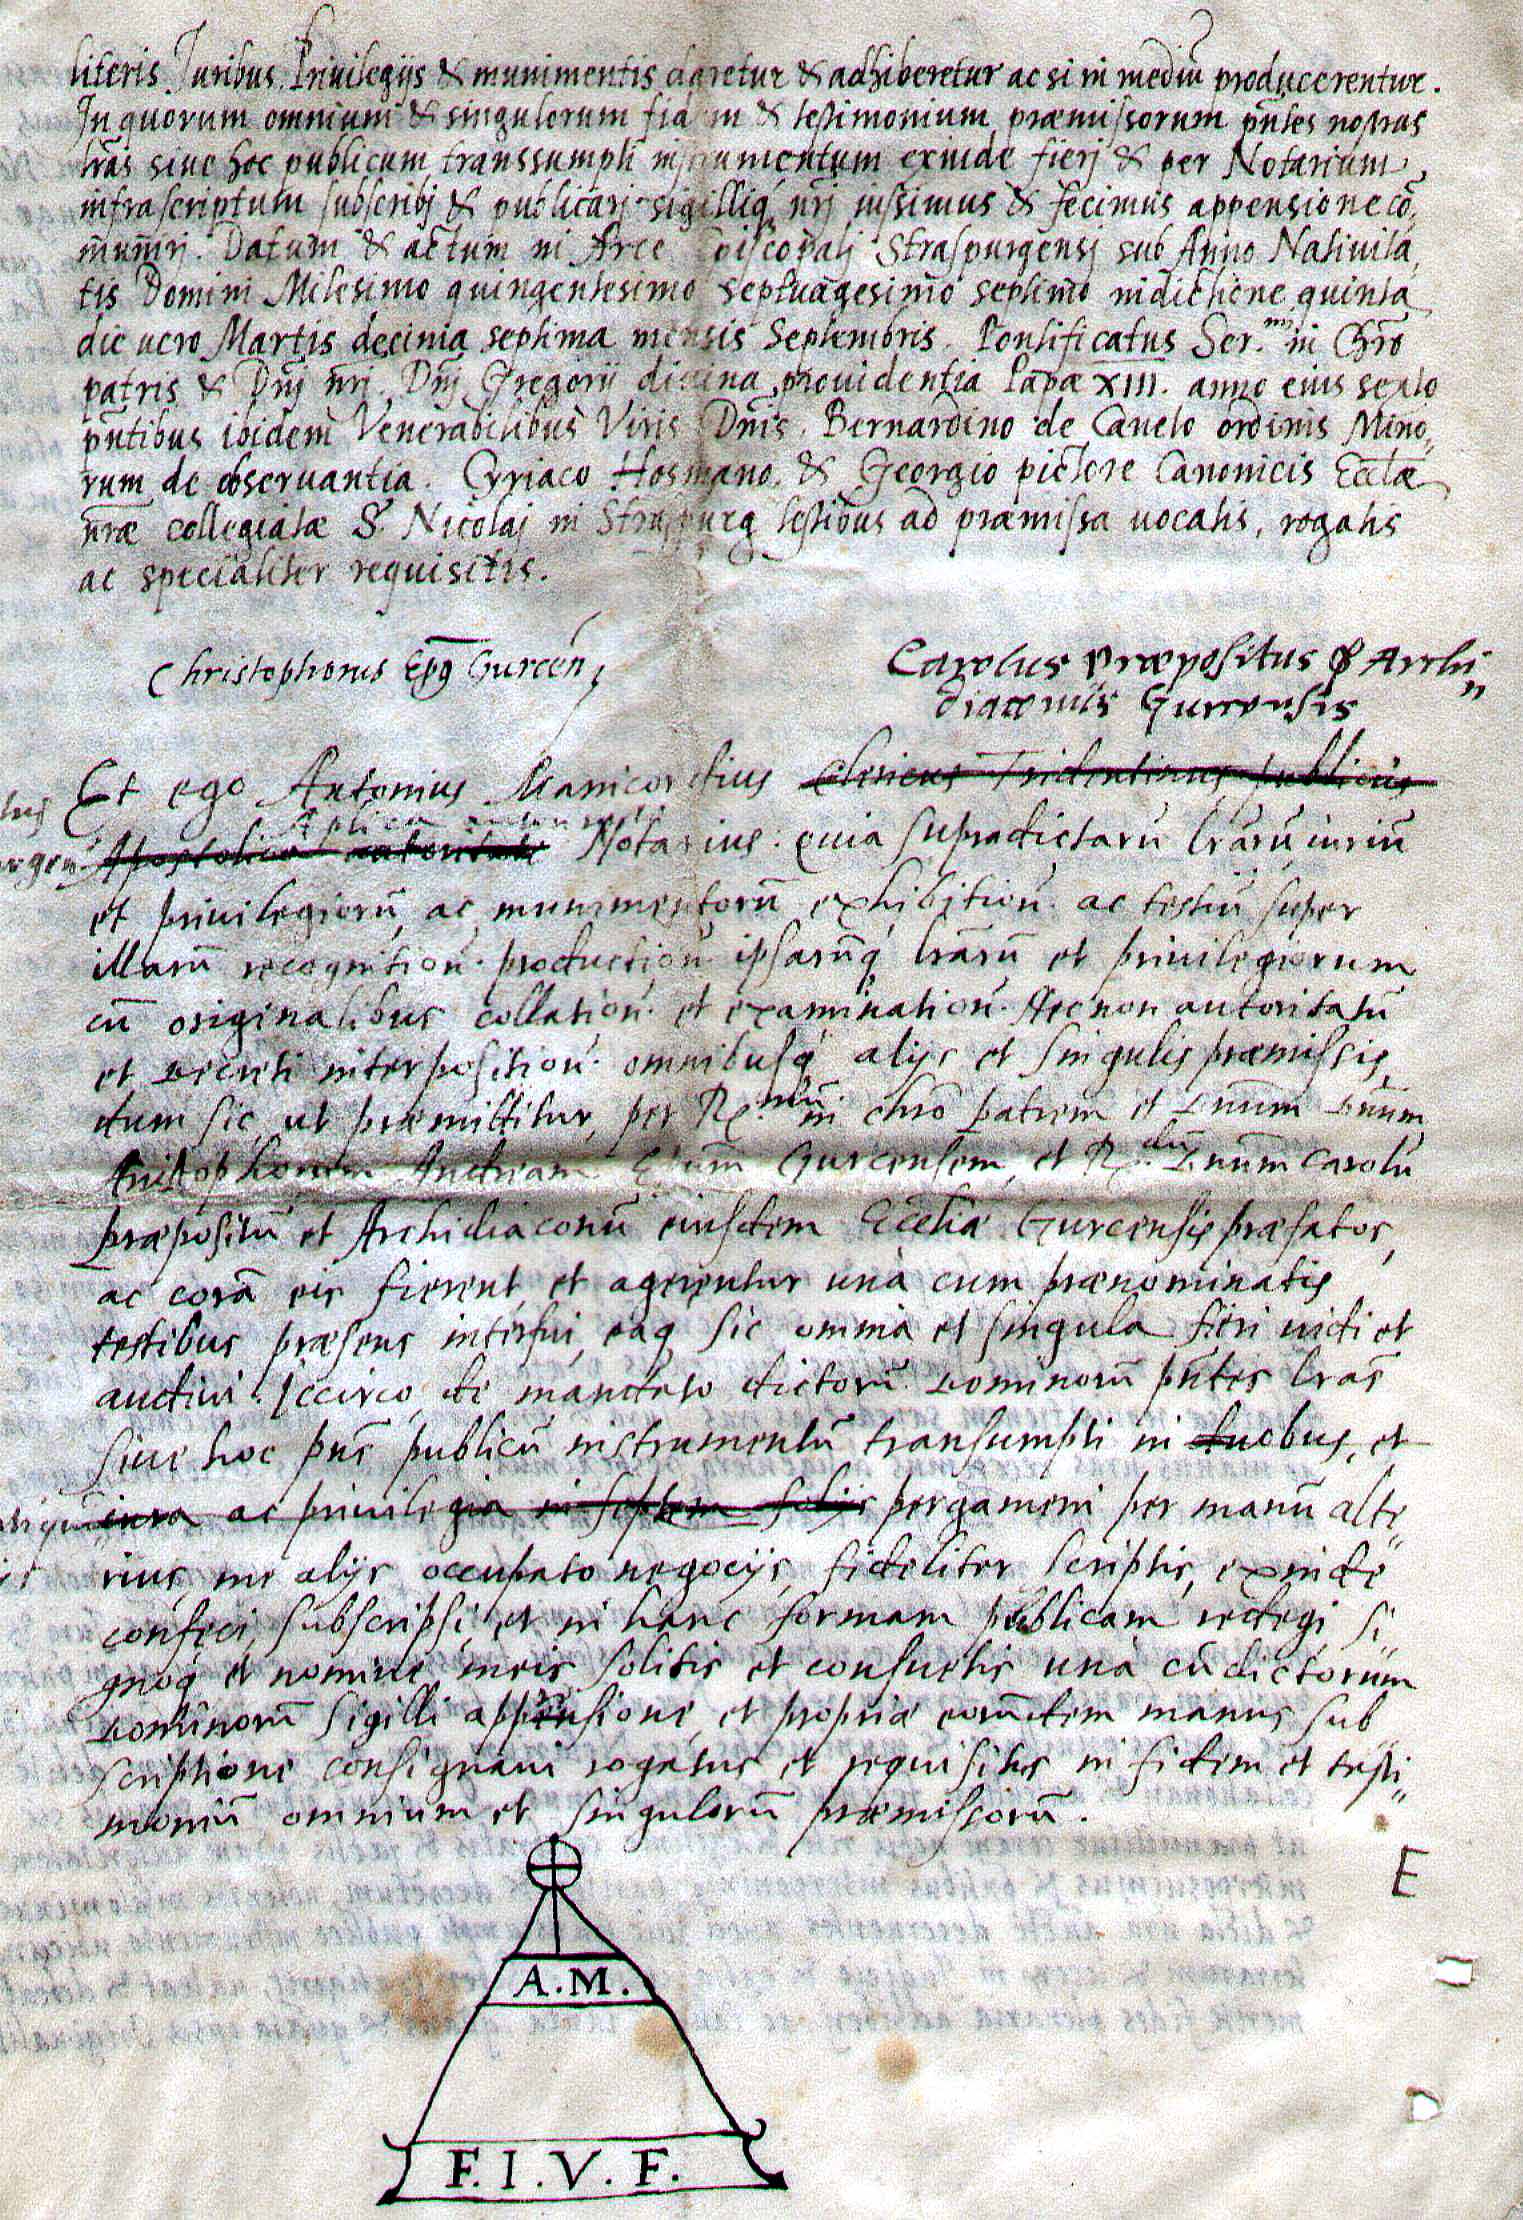 literis Juribus, Priuilegijs & munimentis daretur & adhiberetur ac si in mediū producerentur.
In quorum omnium & singulorum fidem & testimonium præmissorum pn̄tes nostras
lrās siue hoc publicum transsumpti instrumentum exinde fierj & per Notarium
infrascriptum subscribj & publicarj sigilliq́ nr̄j iussimus & fecimus appensione cō,
mumrj. Datum & actum in Arce Episcopalj Straspurgensj sub Anno Natiuita,
tis Domini Milesimo quingentesimo septuagesimo septimo indictione quinta
die uero Martis decima septima mensis Septembris. Pontificatus Ser.mi in Chrō
patris & Dn̄j nr̄j Dn̄j Gregorii diuina prouidentia Papæ XIII. anno eius sexto
pn̄tibus ibidem Venerabilibus Viris Dn̄is. Bernardino de Cauelo ordinis Mino,
rum de obseruantia. Cyriaco Hosmano. & Georgio pictore Canonicis Eccl̄æ
nr̄æ collegiatæ S. Nicolaj in Straspurg testibus ad præmissa uocatis, rogatis
ac specialiter requisitis.
Christophorus Ep̄s Gurcen̄
Carolus Præpositus & Archi„
diaconus Gurcensis
Et ego Antonius Manicordius Clericus Tridentinus publicus
Ap̄lica
Apostolica autoritate Notarius: quia supradictarū lrārū iuriū
et priuilegiorū ac munimentorū exhibitioū. ac testiū super
illarū recognitioū. productioū ipsarūq́ lrārū et priuilegiorum
cū originalibus collatioū. et examinatioū. Necnon autoritatū
et decreti interpositioū. omnibusq́ alijs et singulis præmissis,
dum sic, ut præmittitur, per R.mum in chrō patrem et Dnūm Dnūm
Christophorum Andream Ep̄um Gurcensem, et R.dū Dnūm Carolū
Præpositū et Archidiaconū eiusdem Eccl̄iæ Gurcensis præfatos,
ac corā eis fierent, et agerentur unà cum prænominatis
testibus præsens interfui, eaq́ sic omnia et singula fieri uidi et
audiui. Iccirco de mandato dictorū Dominorū pn̄tes lrās
siue hoc pn̄s publicū instrumentū transumpti in duobus, et
iura ac priuilegia in septem folijs pergameni per manū alte„
rius, me alijs occupato negocijs, fideliter scriptis, exinde
confeci, subscripsi, et in hanc formam publicam redegi, si„
gnoq́ et nomine meis solitis et consuetis unà cū dictorum
Dominorū sigilli appensione, et propriæ eorūdem manus sub„
scriptione consignaui rogatus et requisitus in fidem et testi„
moniū omnium et singulorū præmissorū.
E
A.M.
F.I.V.F.